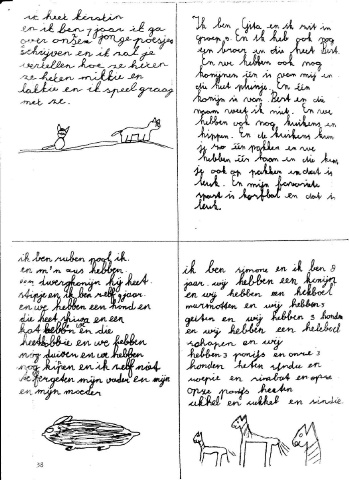 ik heet kirstin
en ik ben 7 jaar ik ga
over onzen jonge poesjes
schrijven en ik zal je
vertellen hoe ze heten
ze heten mikkie en
lakku en ik speel graag
met ze.
Ik ben Gita en ik zit in
groep 3. En ik heb ook nog
een broer en die heet Bert.
En we hebben ook nog
konijnen één is van mij en
die heet pluisje. En één
konijn is van Bert en die
naam weet ik niet. En we
hebben ook nog kuikens en
kippen. En de kuikens kun
je zo één pakken en we
hebben één haan en die kun
je ook op pakken en dat is
leuk. En mijn favoriete
sport is korfbal en dat is
leuk.
ik ben ruben
en m'n zus hebben
een dwergkonijn hij heet
stipje en ik ben zelf 7 jaar.
en we hebben een hond en
die heet en een
kat hebben en die
heet en we hebben
nog duiven en we hebben
nog kipen en ik zelf niet
te vergeten mijn vader en mijn
en mijn moeder
38
ik ben simone en ik ben 8
jaar. wij hebben een konijn
en wij hebben een heleboel
marmotten en wij hebben 3
geiten en wij hebben 3 honden
en wij hebben een heleboel
schapen en wij
hebben 3 ponijs en onze 3
honden heten en
woepie en en onze
onze ponijs heeten
ukkel en ukkel en sindie.